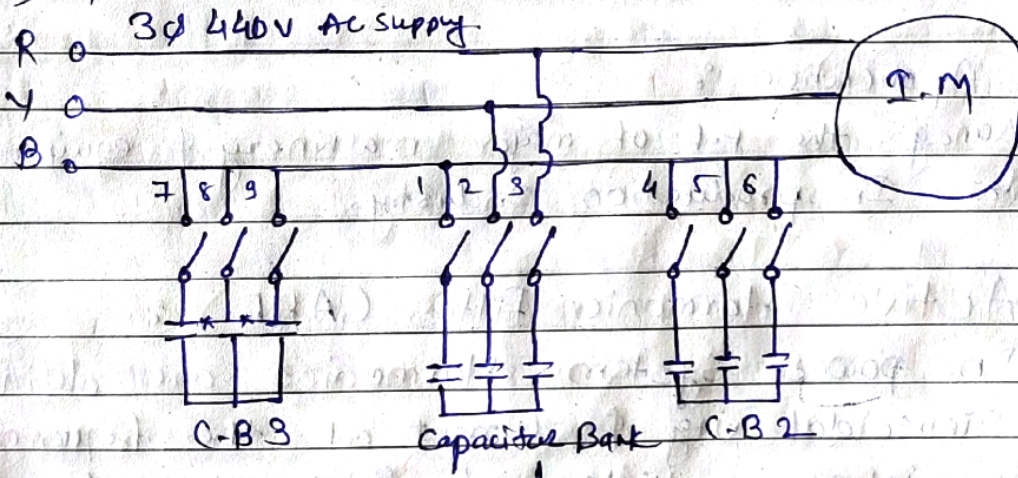 3φ 440V AC Supply
R
Y
B
I.M
7 8 9
1 2 3
4 5 6
C-B 3
Capacitor Bank
C-B 2
1